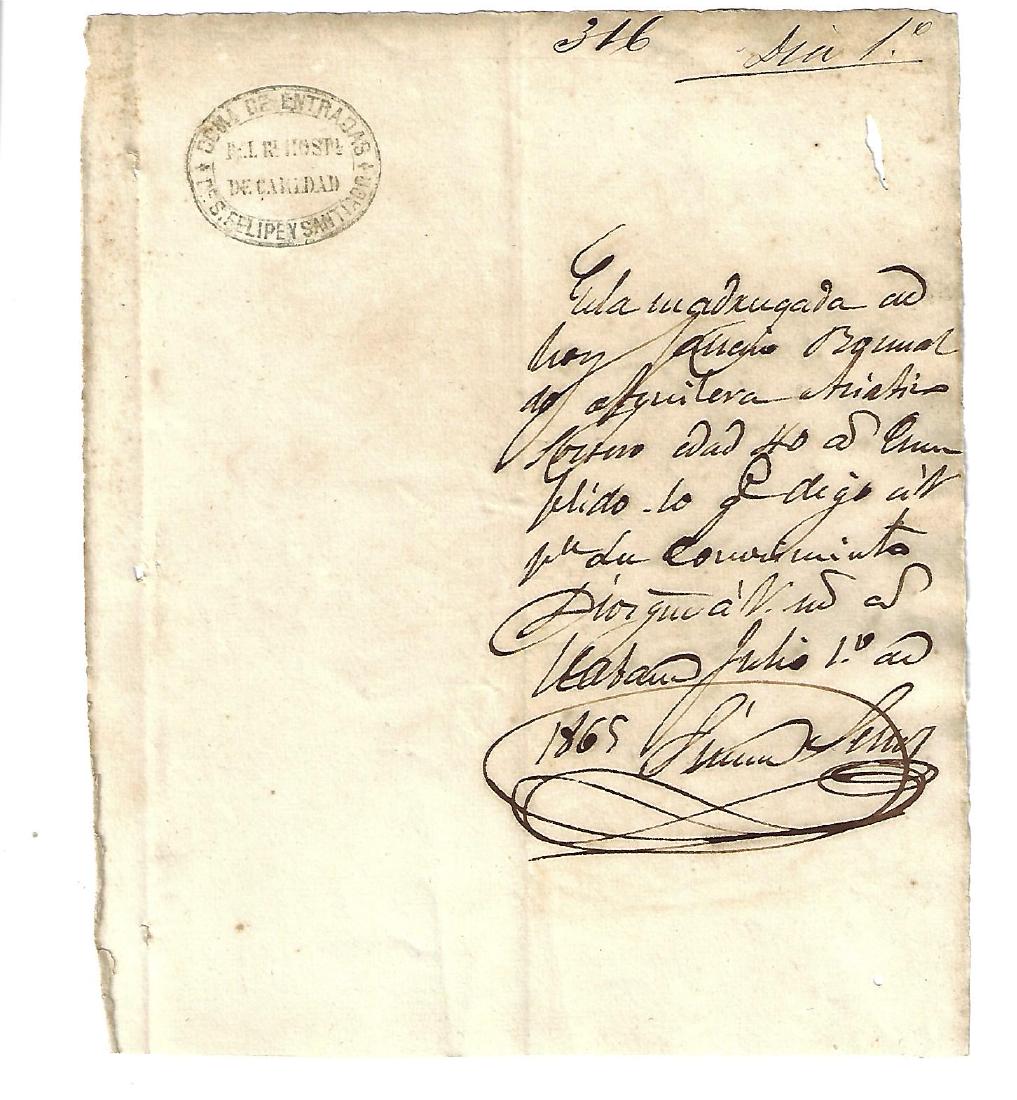 316 Dia 1.º
COMA DE ENTRADAS
DEL Rl HOSPl
DE CARIDAD
DE S. FELIPE Y SANTIAGO
En la madrugada de
hoy
do Aguilera Asiatico
Soltero edad 40 a
lo q.e digo á V
p.a su Conocimiento
Dios gue á V. m.s a.s
Habana Julio 1.º de
1865